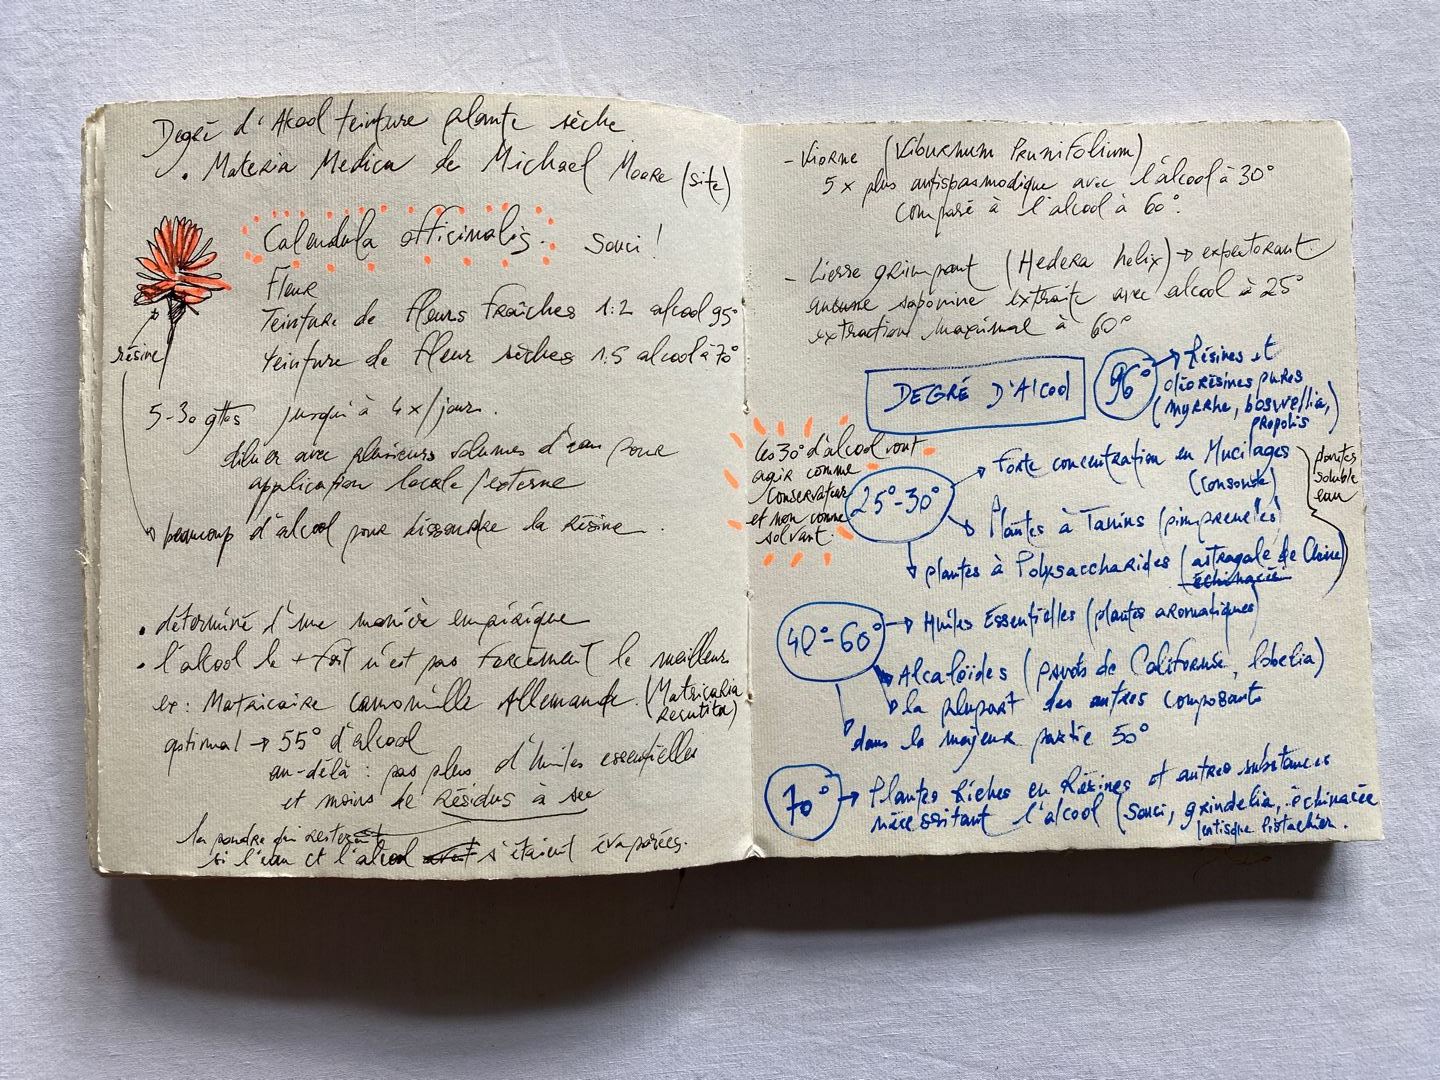 Degré d'Alcool teinture plante sèche
. Materia Medica de Michael Moore (site)
Calendula officinalis. Souci !
Fleur
Teinture de fleurs Fraîches 1:2 alcool 95°
teinture de fleur sèches 1:5 alcool à 70°
résine
5-30 gttes jusqu'à 4x/jour.
diluer avec plusieurs volumes d'eau pour
application locale/externe
beaucoup d'alcool pour dissoudre la résine.
. déterminé d'une manière empirique
. l'alcool le + fort n'est pas forcément le meilleur
ex : Matricaire camomille Allemande. (Matricaria
recutita)
optimal → 55° d'alcool
au-délà : pas plus d'huiles essentielles
et moins de Résidus à sec
la poudre qui
si l'eau et l'alcool s'étaient évaporées.
- Viorne (Viburnum Prunifolium)
5 x plus antispasmodique avec l'alcool à 30°
comparé à l'alcool à 60°.
- Lierre grimpant (Hedera helix) → expectorant
aucune saponine extraite avec alcool à 25°
extraction maximal à 60°
DEGRÉ D'Alcool
96° → Résines et
oléorésines pures
(myrrhe, boswellia,
propolis
Les 30° d'alcool vont
agir comme
conservateur
et non comme
solvant.
25°-30°
Forte concentration en Mucilages
(consoude)
Plantes à Tanins (pimprenelles)
plantes à Polysaccharides (astragale de Chine)
échinacée
plantes
soluble
eau
40°-60° → Huiles Essentielles (plantes aromatiques)
Alcaloïdes (pavots de Californie, lobelia)
la plupart des autres composants
dans la majeur partie 50°
70° → Plantes Riches en Résines et autres substances
nécessitant l'alcool (Souci, grindelia, échinacée
lentisque Pistachier.